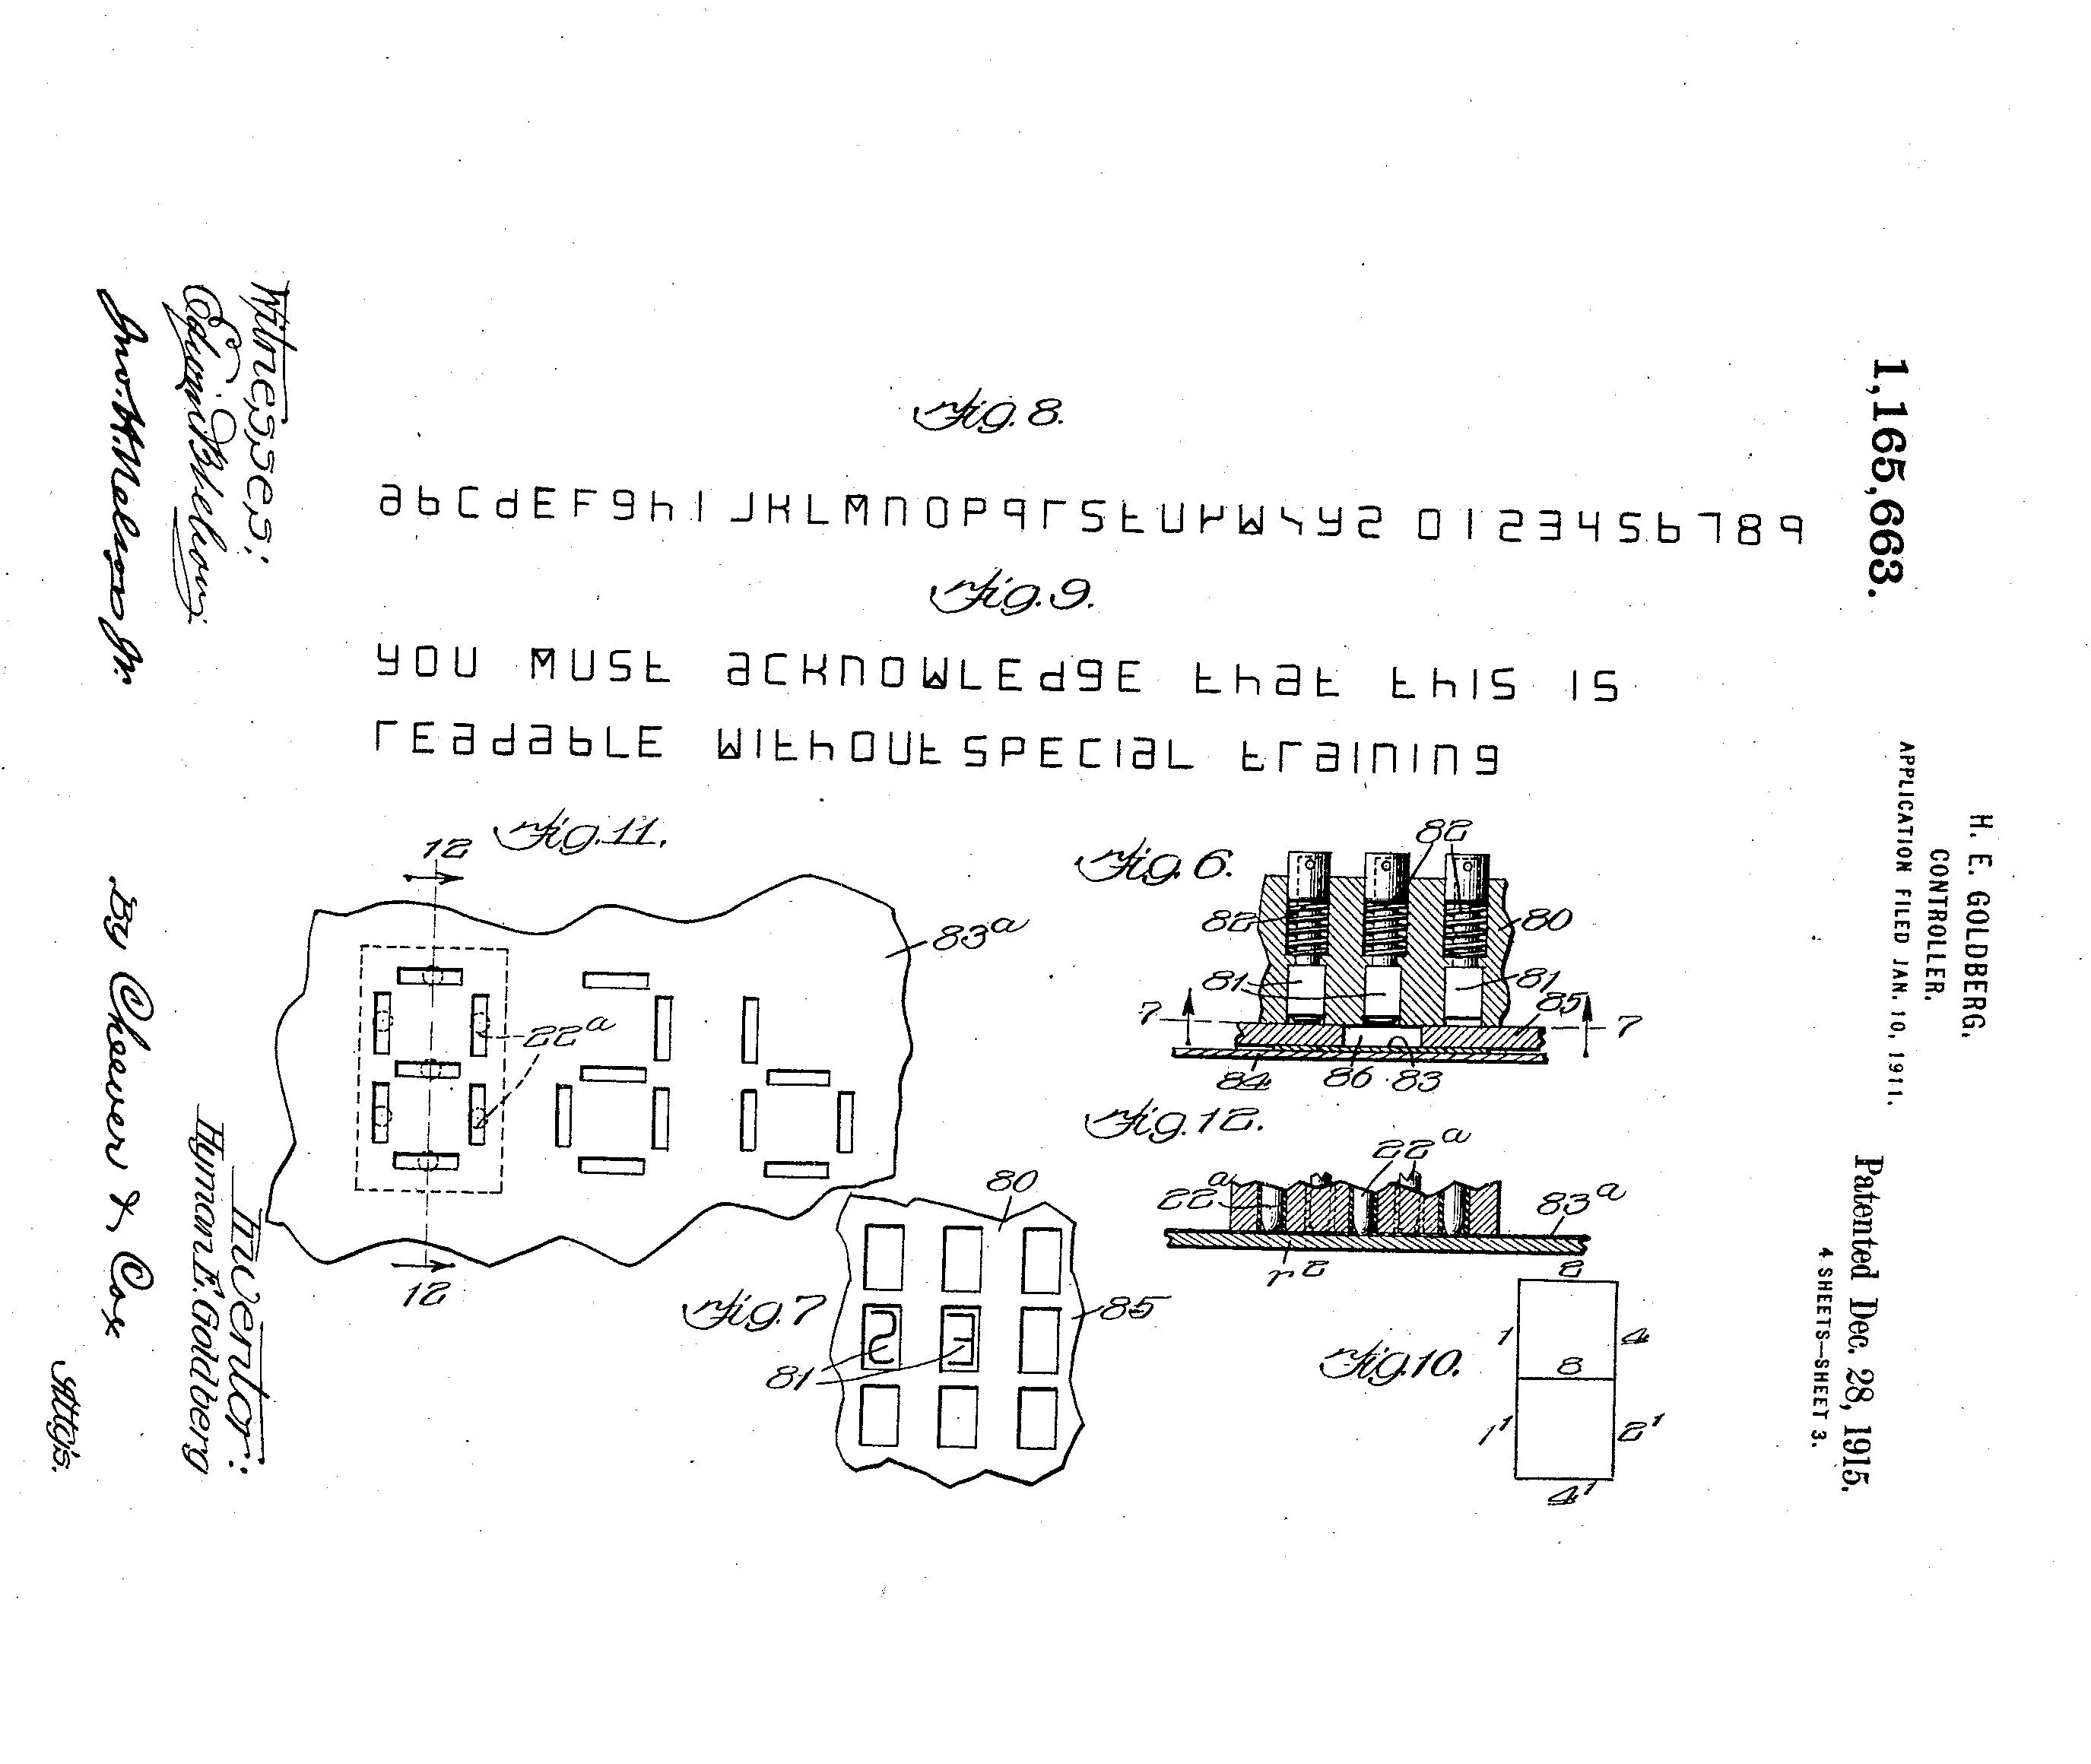 H. E. GOLDBERG.
CONTROLLER.
APPLICATION FILED JAN. 10, 1911.
1,165,663.
Patented Dec. 28, 1915.
4 SHEETS—SHEET 3.
Fig. 8.
abCdEFghIJKLMnOPqrStUvWxyz 0123456789
Fig. 9.
yOU MUSt aCKnOWLEdgE that thIS IS
rEadabLE WIthOUt SPECIaL traInIng
Fig. 11.
12
83a
22a
12
Fig. 6.
82
82
80
81
81
85
7
7
84
86
83
Fig. 12.
22a
22a
83a
r2
Fig. 7
80
85
2
E
81
Fig. 10.
2
1
4
8
1'
2'
4'
Witnesses:
Jno. H. Nelson Jr.
Inventor:
Hyman E. Goldberg
By Cheever & Cox
Attys.